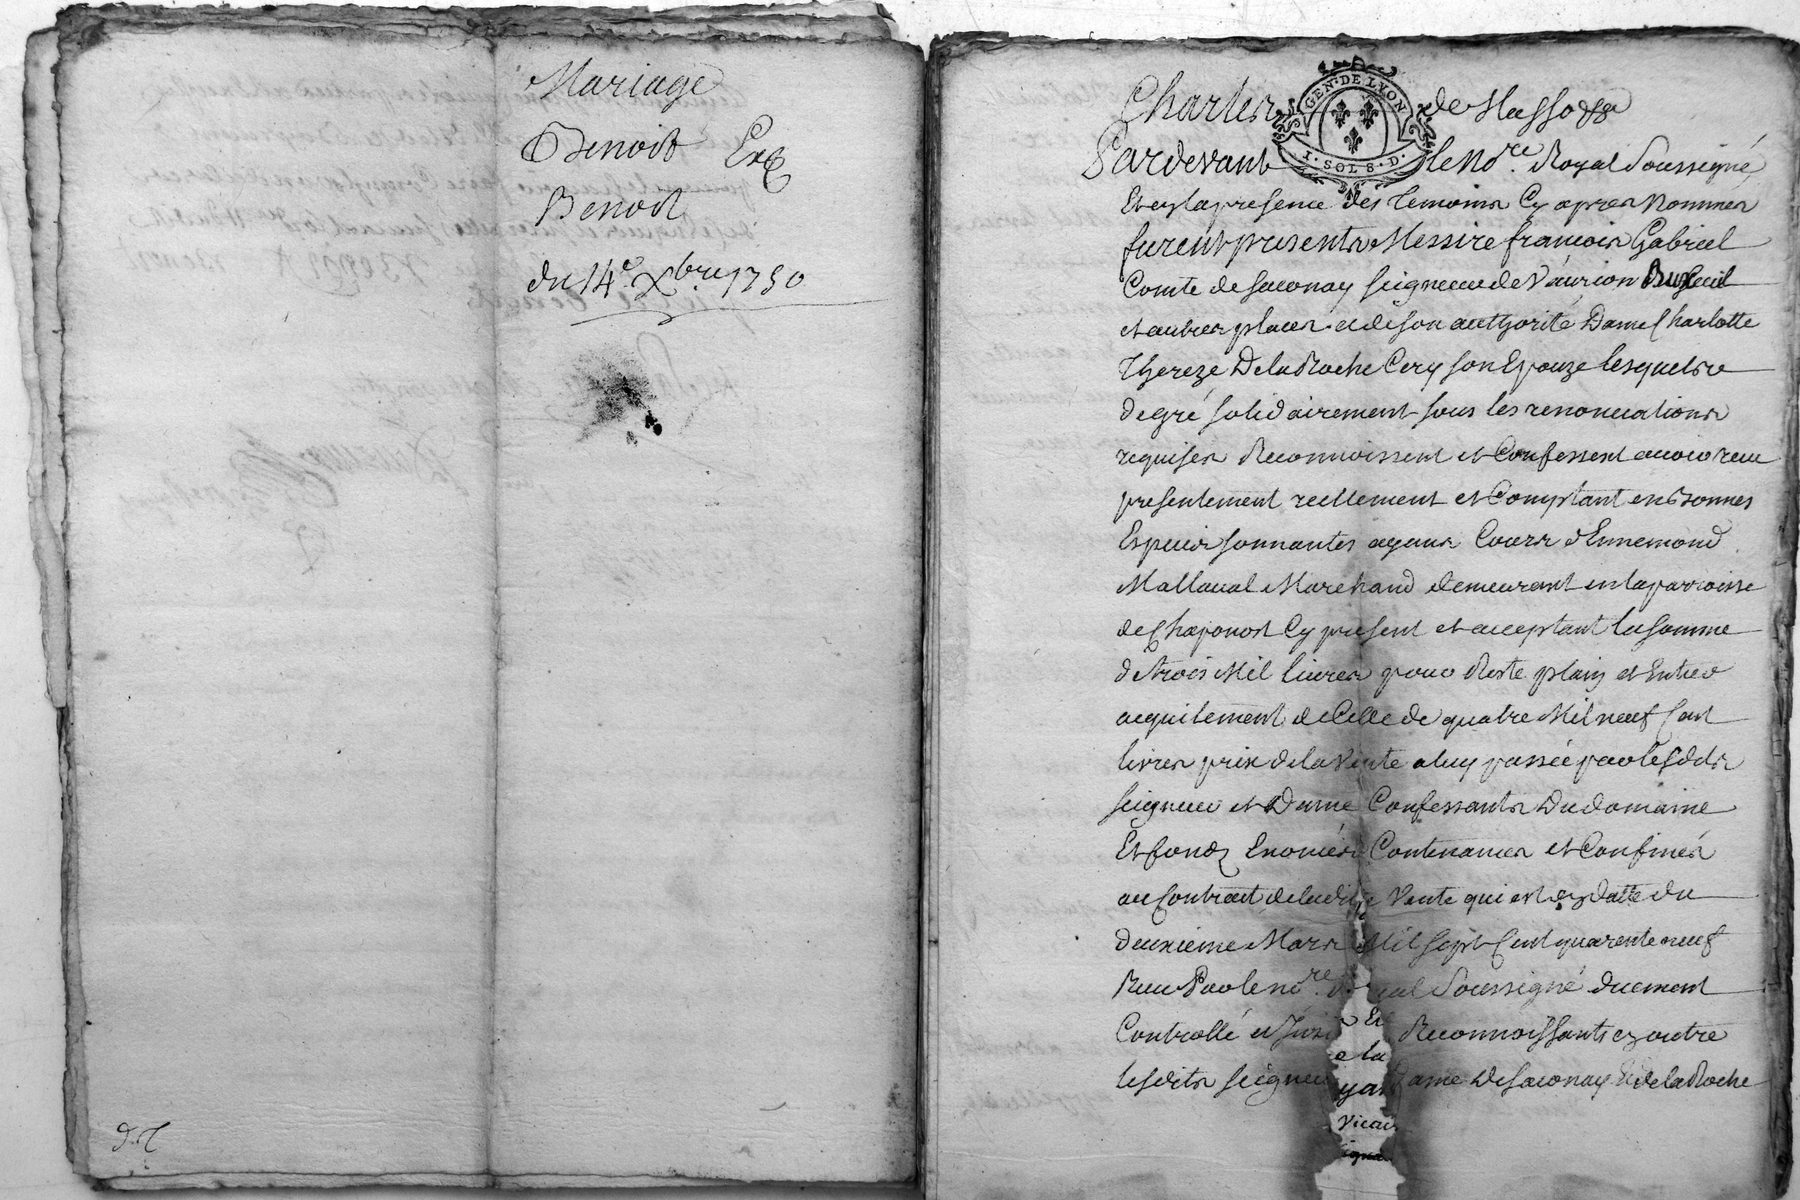 Mariage
Benoit Ex
Benoit
du 14e Xbre 1750
Charles de
GEN·DE LYON
I·SOL 8·D·
Pardevant le Nore Royal Soussigné
Et en la presence des temoins Cy apres Nommes
furent presents Messire francois Gabriel
Comte de Saconay seigneur de Vaurion
et autres places et de son authorité Dame Charlotte
Thereze De la Roche Cery son Epouze lesquels
de gré solidairement sous les renonciations
requises Reconnoissent et Confessent avoir receu
presentement reellement et Comptant en bonnes
Especes sonnantes ayant Cours d'Ennemond
Mallaval Marchand demeurant en la parroisse
de Chaponost Cy present et acceptant la somme
de trois Mil livres pour Reste plain et Entier
acquitement de Celle de quatre Mil neuf Cent
livres prix de la Vente a luy passée par lesdits
seigneur et Dame Confessants Du domaine
Et fonds Enoncés Contenances et Confinés
au Contract de ladite Vente qui est en datte du
deuxieme Mars Mil sept Cent quarente neuf
Receu Par le nore Royal Soussigné duement
Controllé et Reconnoissants en outre
lesdits seigneur Dame De Saconay et de la Roche